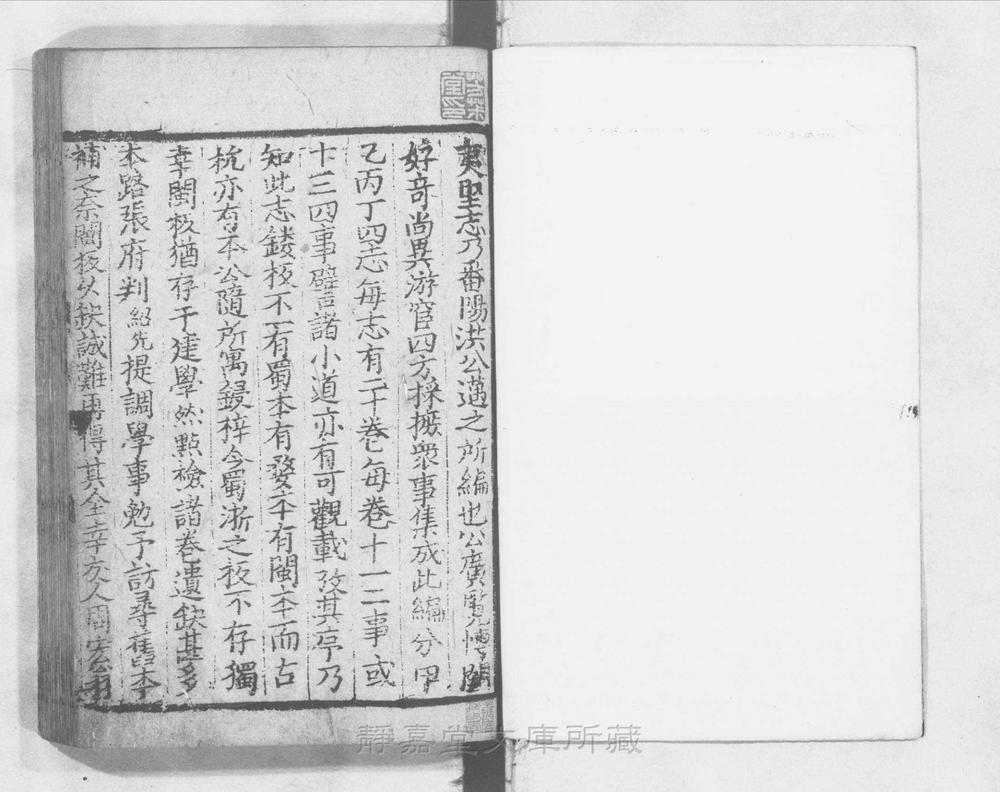 夷堅志乃番陽洪公邁之所編也公廣覽博聞
好竒尚異游宦四方採摭衆事集成此編分甲
乙丙丁四志每志有二十卷每卷十一二事或
十三四事譬諸小道亦有可觀載攷其序乃
知此志鏤板不一有蜀本有婺本有閩本而古
杭亦有本公隨所寓鋟梓今蜀浙之板不存獨
幸閩板猶存于建學然點檢諸卷遺缺甚多
本路張府判紹先提調學事勉予訪尋舊本
補之奈閩板久缺誠難再得其全幸友人周宏翁
靜嘉堂文庫所藏